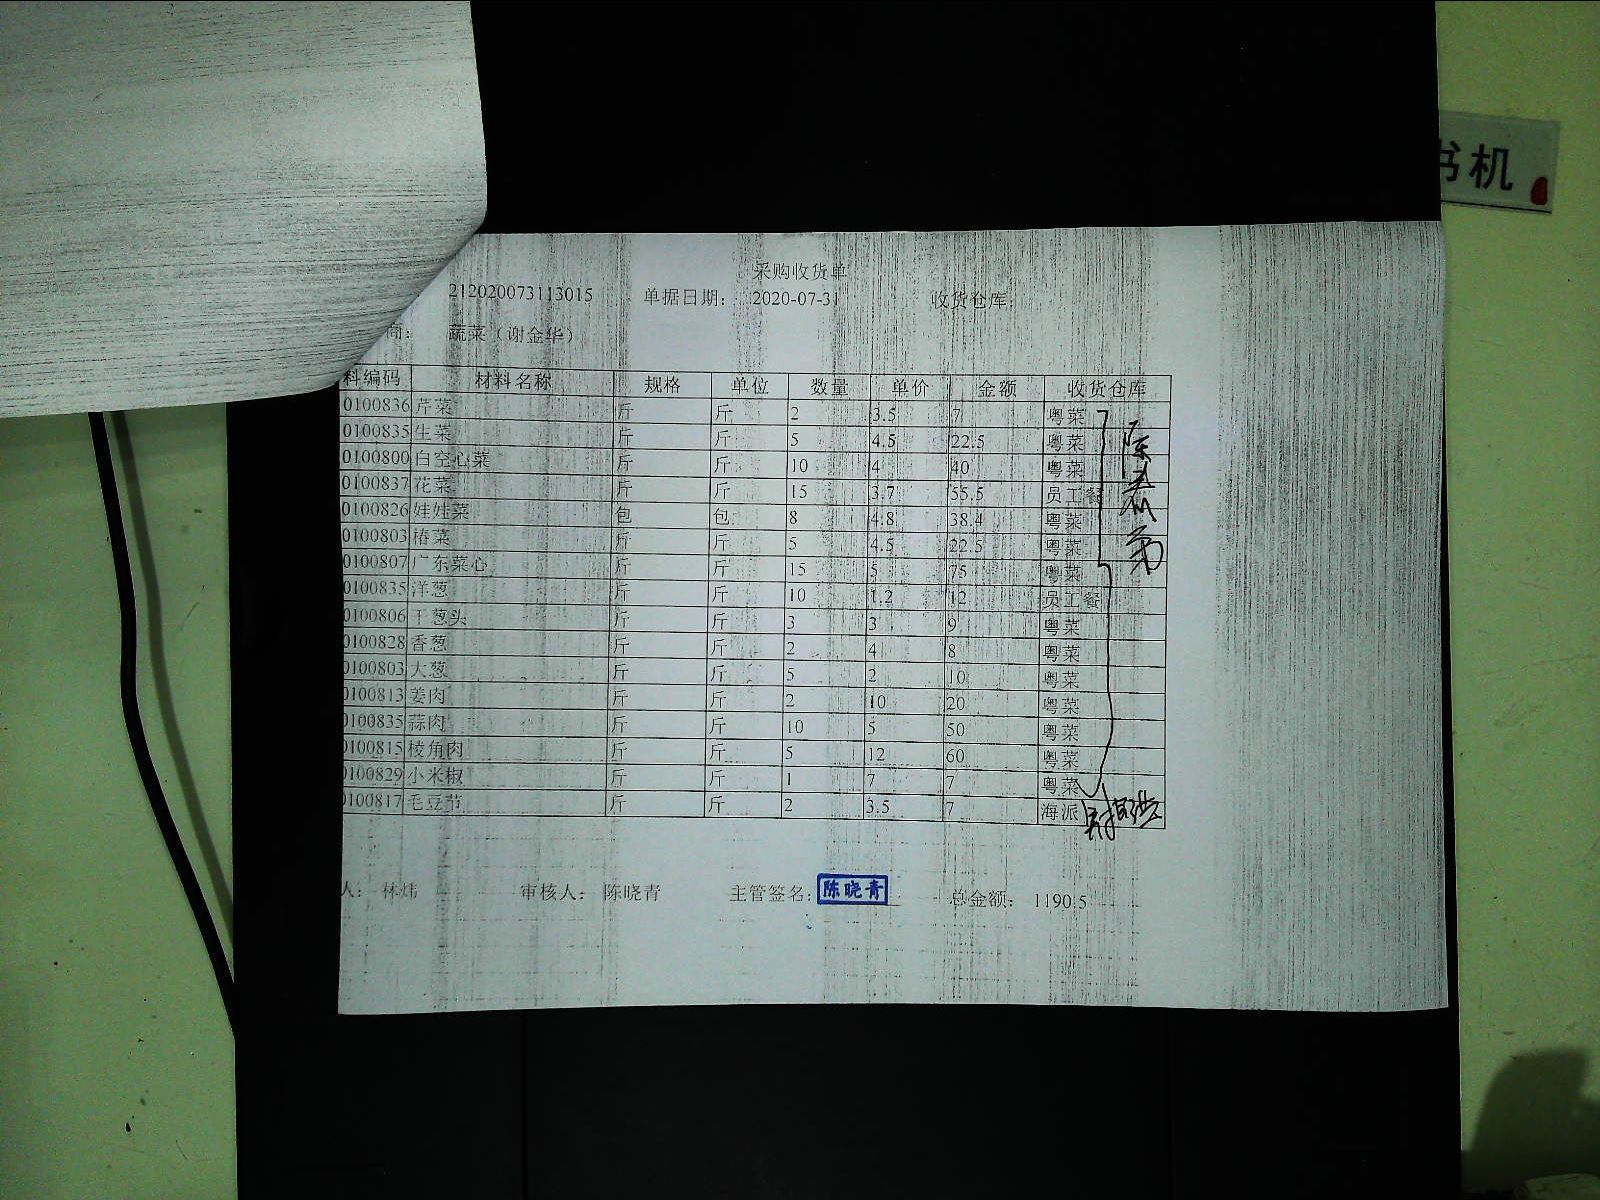 书机
采购收货单
212020073113015 单据日期: 2020-07-31 收货仓库:
商: 蔬菜（谢金华）
料编码 材料名称 规格 单位 数量 单价 金额 收货仓库
0100836 芹菜 斤 斤 2 3.5 7 粤菜
0100835 生菜 斤 斤 5 4.5 22.5 粤菜
0100800 白空心菜 斤 斤 10 4 40 粤菜
0100837 花菜 斤 斤 15 3.7 55.5 员工餐
0100826 娃娃菜 包 包 8 4.8 38.4 粤菜
0100803 椿菜 斤 斤 5 4.5 22.5 粤菜
0100807 广东菜心 斤 斤 15 5 75 粤菜
0100835 洋葱 斤 斤 10 1.2 12 员工餐
0100806 干葱头 斤 斤 3 3 9 粤菜
0100828 香葱 斤 斤 2 4 8 粤菜
0100803 大葱 斤 斤 5 2 10 粤菜
0100813 姜肉 斤 斤 2 10 20 粤菜
0100835 蒜肉 斤 斤 10 5 50 粤菜
0100815 棱角肉 斤 斤 5 12 60 粤菜
0100829 小米椒 斤 斤 1 7 7 粤菜
0100817 毛豆节 斤 斤 2 3.5 7 海派
人: 林炜 审核人: 陈晓青 主管签名: 陈晓青 总金额: 1190.5